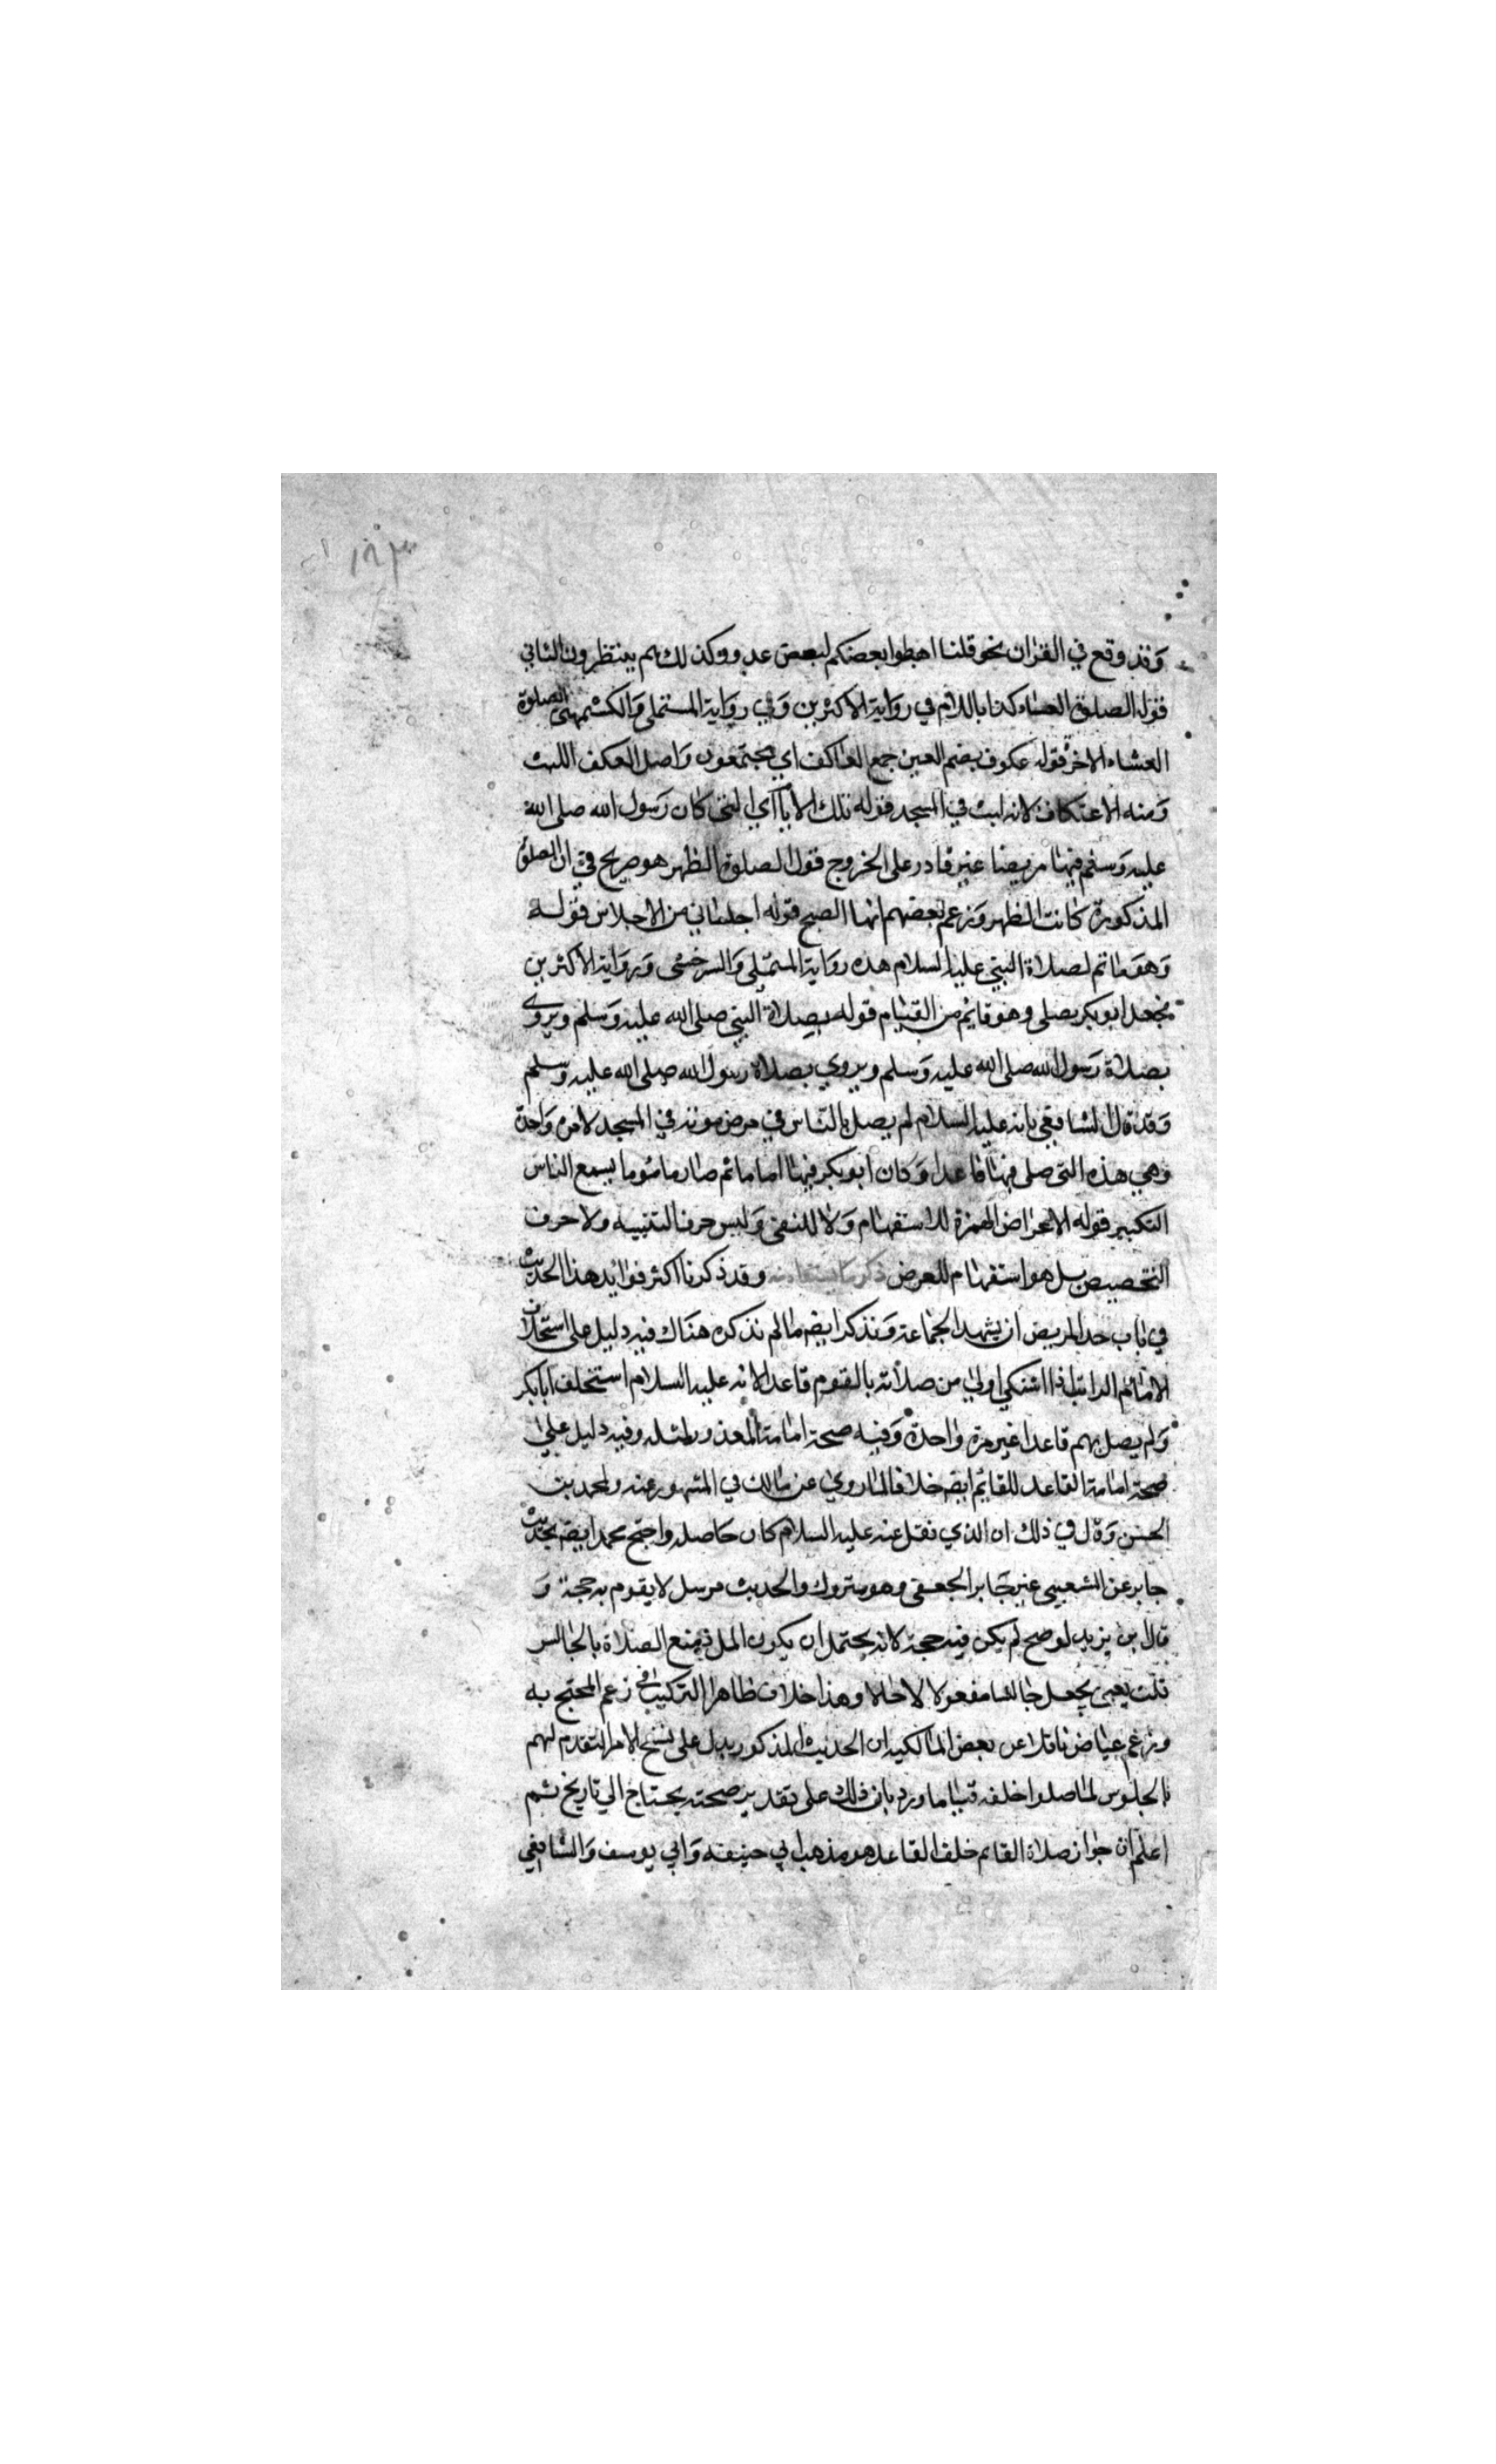 ١٨٣
وقد وقع في القران نحو قلنا اهبطوا بعضكم لبعض عدو وكذلك هم ينتظرون الثاني
قوله الصلوة العشاء كذا باللام في رواية الاكثرين وفي رواية المستملي والكشميهني الصلوة
العشاء الاخر قوله عكوف بضم العين جمع العاكف اي مجتمعون واصل العكف اللبث
ومنه الاعتكاف لانه لبث في المسجد قوله تلك الايام اي التي كان رسول الله صلى الله
عليه وسلم فيها مريضا غير قادر على الخروج قوله لصلوة الظهر هو صريح في ان الصلوة
المذكورة كانت الظهر وزعم بعضهم انها الصبح قوله اجلساني من الاجلاس قوله
وهو ماتم لصلاة النبي عليه السلام هذه رواية المستملي والسرخسي ورواية الاكثرين
فجعل ابو بكر يصلي وهو قائم من القيام قوله بصلاة النبي صلى الله عليه وسلم ويروى
بصلاة رسول الله صلى الله عليه وسلم ويروي بصلاة رسول الله صلى الله عليه وسلم
وقد قال الشافعي بانه عليه السلام لم يصل بالناس في مرض موته في المسجد لا مرة واحدة
وهي هذه التي صلى فيها قاعدا وكان ابو بكر فيها اماما ثم صار ماموما يسمع الناس
التكبير قوله الا عراض الهمزة للاستفهام ولا للنفي وليس حرف التنبيه ولا حرف
التحصيص بل هو استفهام للعرض ذكر ما يستفاد منه وقد ذكرنا اكثر فوائد هذا الحديث
في باب حد المريض ان يشهد الجماعة ونذكر ايضم ما لم نذكره هناك فيه دليل على استخلاف
الامام الراتب اذا اشتكي اولي من صلاته بالقوم قاعدا لانه عليه السلام استخلف ابا بكر
ولم يصل بهم قاعدا غير مرة واحدة وفيه صحة امامة المعذور لمثله وفيه دليل على
صحة امامة القاعد للقائم ايضم خلافا لما روي عن مالك في المشهور عنه ولمحمد بن
الحسن وقال في ذلك ان الذي نقل عنه عليه السلام كان خاصا له واحتج محمد ايضم بحديث
جابر عن الشعبي عنه جابر الجعفي وهو متروك والحديث مرسل لا يقوم به حجة و
قال بن يزيد لو صح لم يكن فيه حجة لانه يحتمل ان يكون المراد منع الصلاة بالجالس
قلت يعني يجعل جالسا مفعولا لا حالا وهذا خلاف ظاهر التركيب في زعم المحتج به
وزعم عياض ناقلا عن بعض المالكيه ان الحديث المذكور يدل على نسخ الامر المتقدم لهم
بالجلوس لما صلوا خلفه قياما ورد بان ذلك على تقدير صحته يحتاج الي تاريخ ثم
اعلم ان جواز صلاة القائم خلف القاعد هو مذهب ابي حنيفه وابي يوسف والشافعي